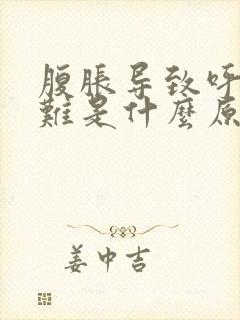 腹脹导致呼
難是什麼原
姜中吉